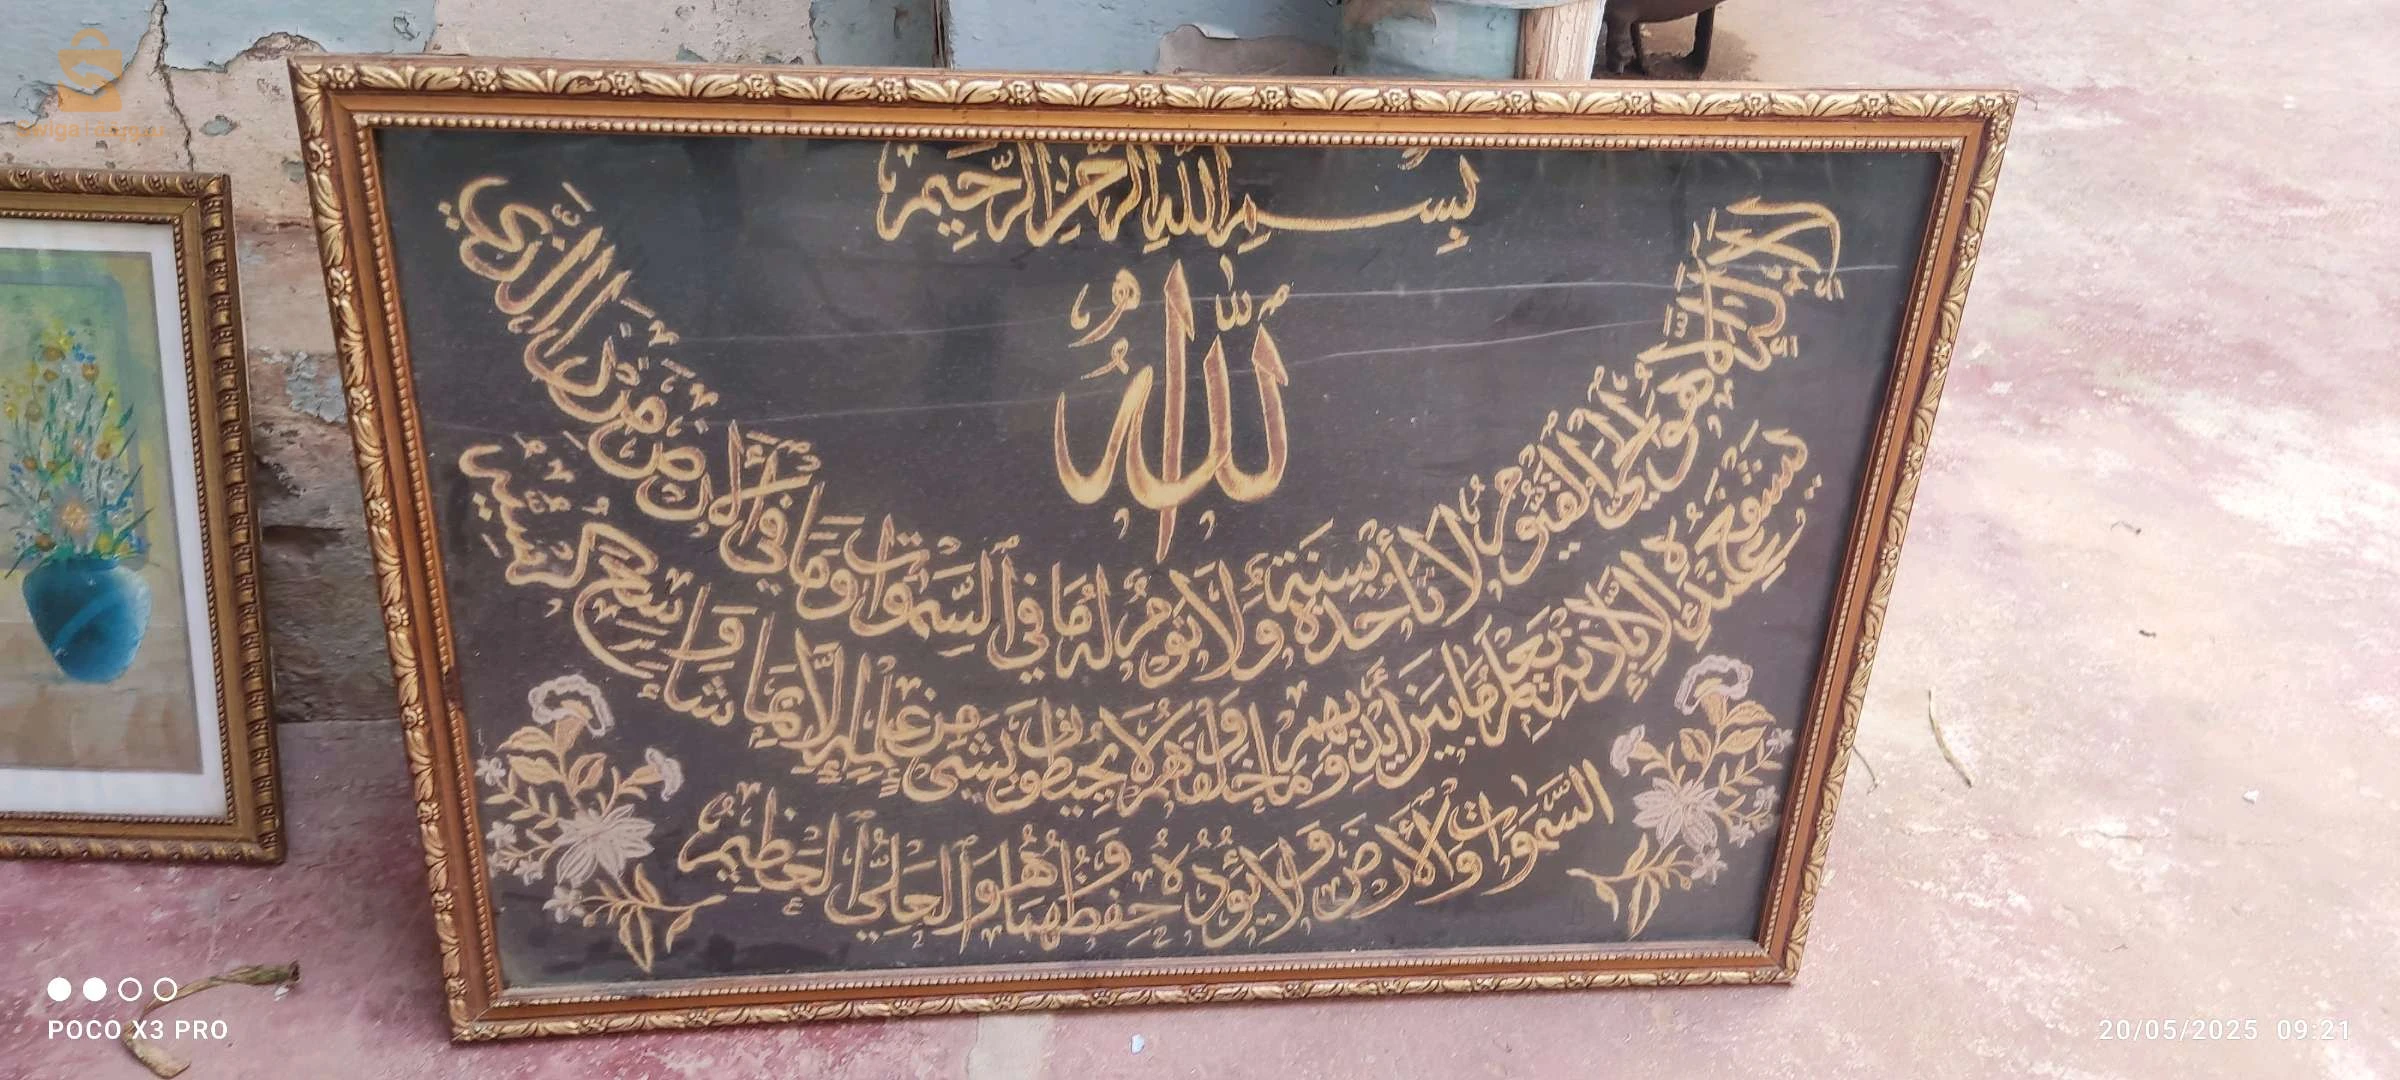 بِسْمِ اللَّهِ الرَّحْمَنِ الرَّحِيمِ
اللَّهُ
لَا إِلَهَ إِلَّا هُوَ الْحَيُّ الْقَيُّومُ لَا تَأْخُذُهُ سِنَةٌ وَلَا نَوْمٌ لَهُ مَا فِي السَّمَوَاتِ وَمَا فِي الْأَرْضِ مَنْ ذَا الَّذِي
يَشْفَعُ عِنْدَهُ إِلَّا بِإِذْنِهِ يَعْلَمُ مَا بَيْنَ أَيْدِيهِمْ وَمَا خَلْفَهُمْ وَلَا يُحِيطُونَ بِشَيْءٍ مِنْ عِلْمِهِ إِلَّا بِمَا شَاءَ وَسِعَ كُرْسِيُّهُ
السَّمَوَاتِ وَالْأَرْضَ وَلَا يَئُودُهُ حِفْظُهُمَا وَهُوَ الْعَلِيُّ الْعَظِيمُ
POCO X3 PRO
20/05/2025 09:21